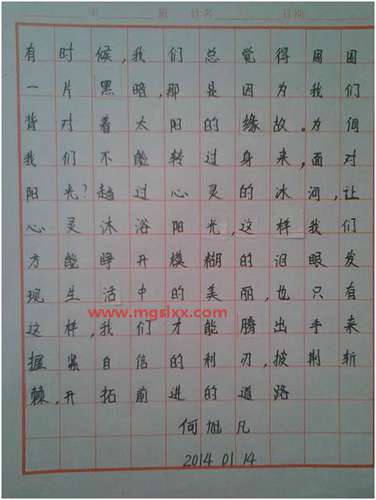 年 班 姓名 日期
有时候,我们总觉得周围
一片黑暗,那是因为我们
背对着太阳的缘故。为何
我们不能转过身来,面对
阳光?越过心灵的冰河,让
心灵沐浴阳光,这样我们
方能睁开模糊的泪眼发
现生活中的美丽,也只有
www.mgslxx.com
这样,我们才能腾出手来
握紧自信的利刃,披荆斩
棘,开拓前进的道路
何旭凡
2014 01 14